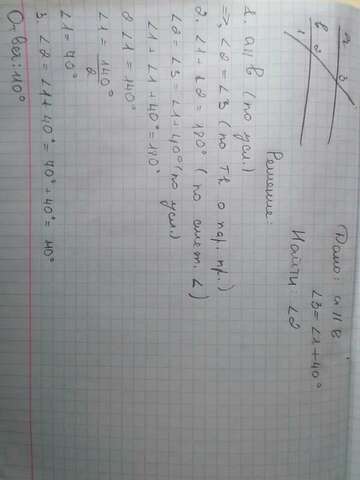 Дано: a || b
∠3=∠1+40°
Найти: ∠2
a
b
1 2
3
Решение:
1. a||b (по усл.)
=>, ∠2=∠3 (по т. о пар. пр.)
2. ∠1+∠2=180° (по смеж. ∠)
∠2=∠3=∠1+40° (по усл.)
∠1+∠1+40°=180°
2∠1=140°
∠1=140°
2
∠1=70°
3 ∠2=∠1+40°=70°+40°=110°
Ответ: 110°